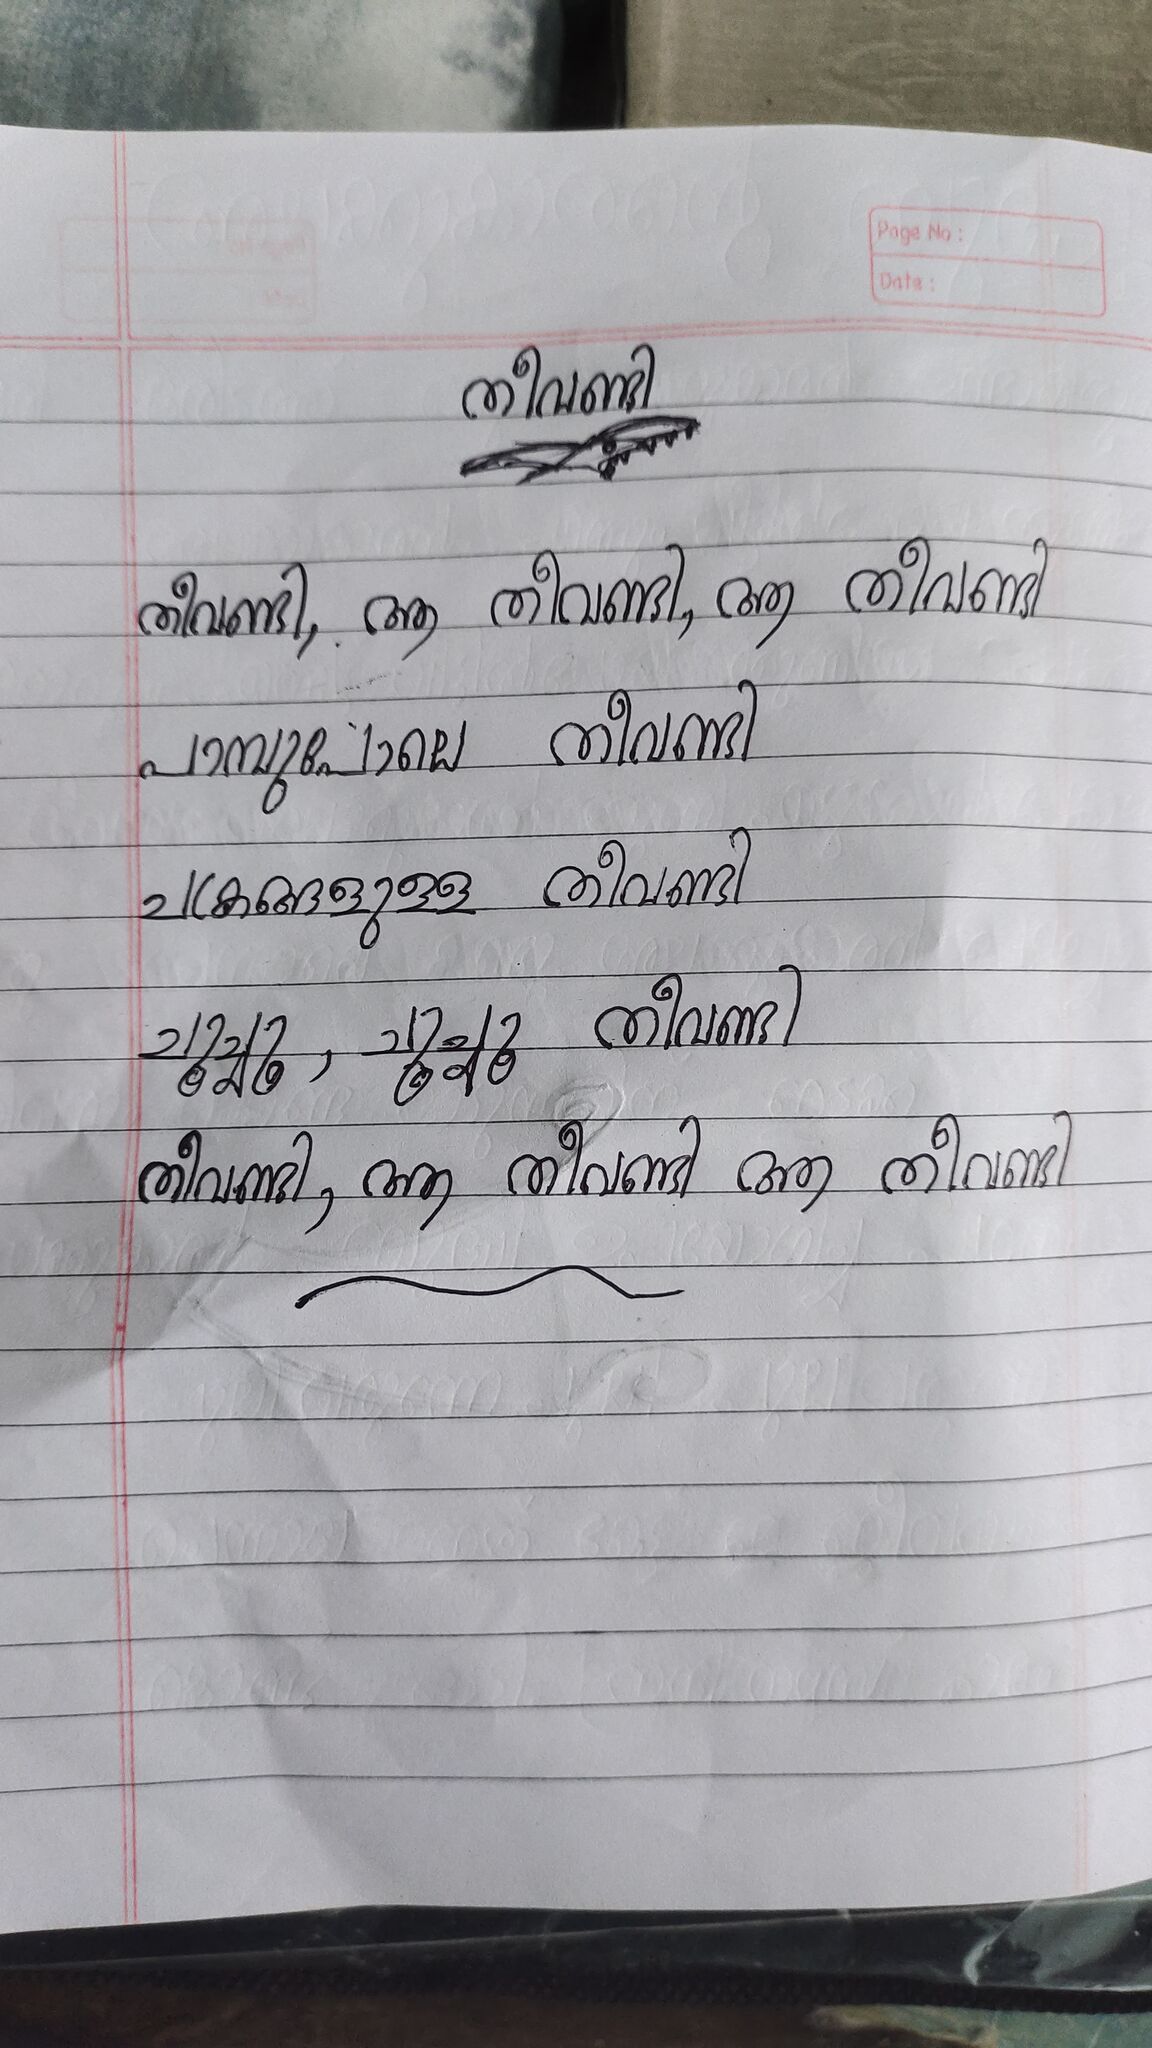 Page No :
Date :
തീവണ്ടി
തീവണ്ടി, ആ തീവണ്ടി, ആ തീവണ്ടി
പാമ്പുപോലെ തീവണ്ടി
ചക്രങ്ങളുള്ള തീവണ്ടി
ഛൂഛൂ, ഛൂഛൂ തീവണ്ടി
തീവണ്ടി, ആ തീവണ്ടി ആ തീവണ്ടി